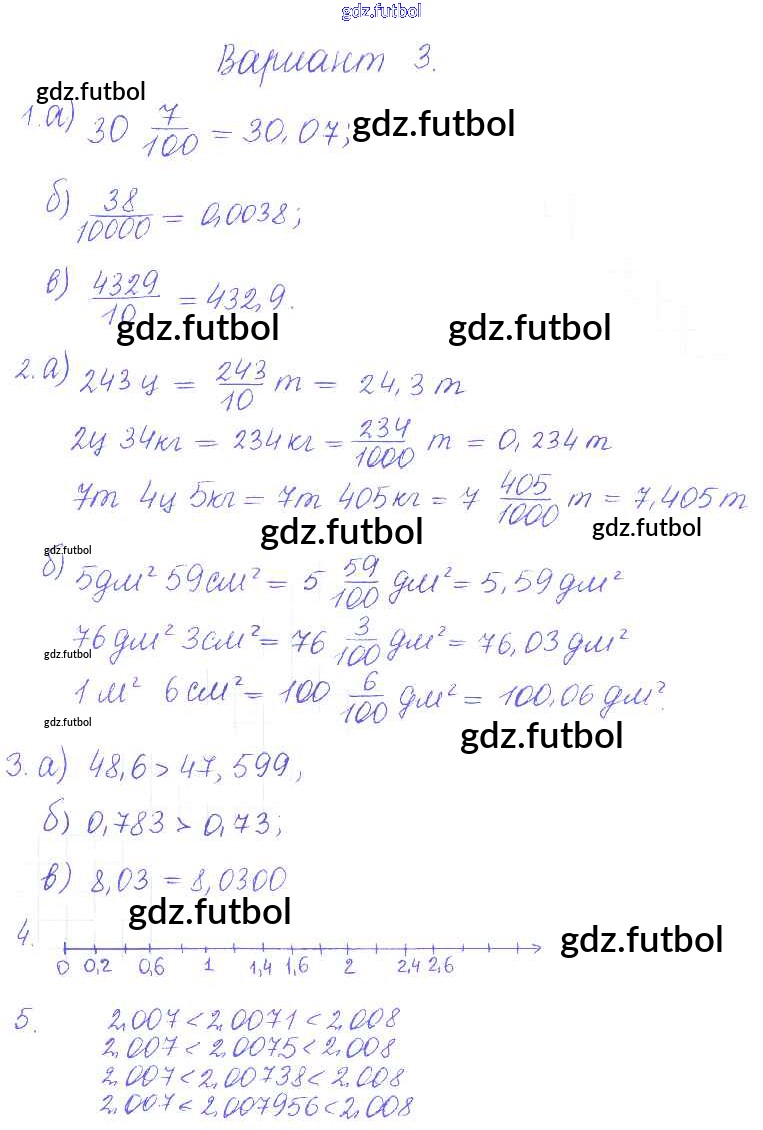 gdz.futbol
Вариант 3.
gdz.futbol
1. а) 30 7/100 = 30,07; gdz.futbol
б) 38/10000 = 0,0038;
в) 4329/10 = 432,9.
gdz.futbol gdz.futbol
2. а) 243 ц = 243/10 т = 24,3 т
2ц 34кг = 234кг = 234/1000 т = 0,234 т
7т 4ц 5кг = 7т 405кг = 7 405/1000 т = 7,405 т
gdz.futbol gdz.futbol
gdz.futbol
б) 5дм² 59см² = 5 59/100 дм² = 5,59 дм²
76 дм² 3см² = 76 3/100 дм² = 76,03 дм²
gdz.futbol
1 м² 6 см² = 100 6/100 дм² = 100,06 дм².
gdz.futbol
gdz.futbol
3. а) 48,6 > 47,599;
б) 0,783 > 0,73;
в) 8,03 = 8,0300
gdz.futbol
4. gdz.futbol
0 0,2 0,6 1 1,4 1,6 2 2,4 2,6
5. 2,007 < 2,0071 < 2,008
2,007 < 2,0075 < 2,008
2,007 < 2,00738 < 2,008
2,007 < 2,007956 < 2,008